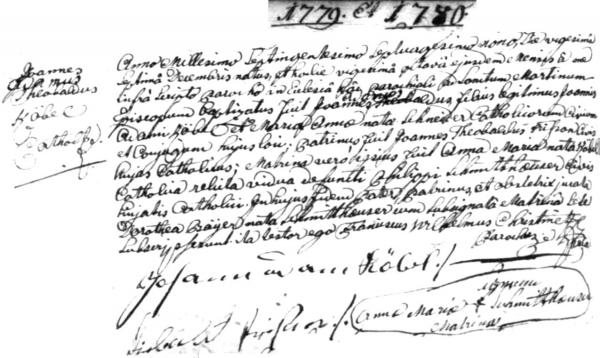 1779. Et 1780
Joannes
Adamus
Theobaldus
Köbel
Catholic
Anno Millesimo Septingentesimo Septuagesimo nono, Die vigesima
Septima Decembris natus, et hodie vigesima octava ejusdem Mensis a me
infra scripto parocho in Ecclesia hac parochiali ad Sanctum Martinum
Episcopum Baptizatus fuit Joannes Theobaldus filius legitimus Joannis
Adami Köbel Et Mariæ Annæ natæ Catholicorum Civium
et Conjugum hujus loci; Patrinus fuit Joannes Theobaldus
hujas Catholicus; Matrina vero ipsius fuit Anna Maria nata Köbel
Catholica relicta vidua defuncti Philippi Schmitthæuser Civis
hujatis Catholici. In hujus fidem Pater, Patrinus, et obstetrix jurata
Dorothea Bayer nata Schmitthäuser una subsignata Matrina
Subscripserunt. ita testor ego Franciscus Wilhelmus Christmet
Parochus
Johann adam Köbel
signum
Anna Maria + Schmitthäuser
Matrina